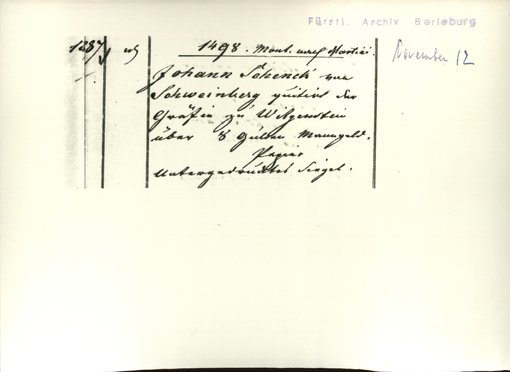 Fürstl. Archiv Berleburg
1287
1498. Mont. nach Martini.
November 12
Johann Schenck von
Schweinsberg quitirt der
Gräfin zu Witgenstein
über 8 Gulden Manngeld.
Papier
Untergedrucktes Siegel.